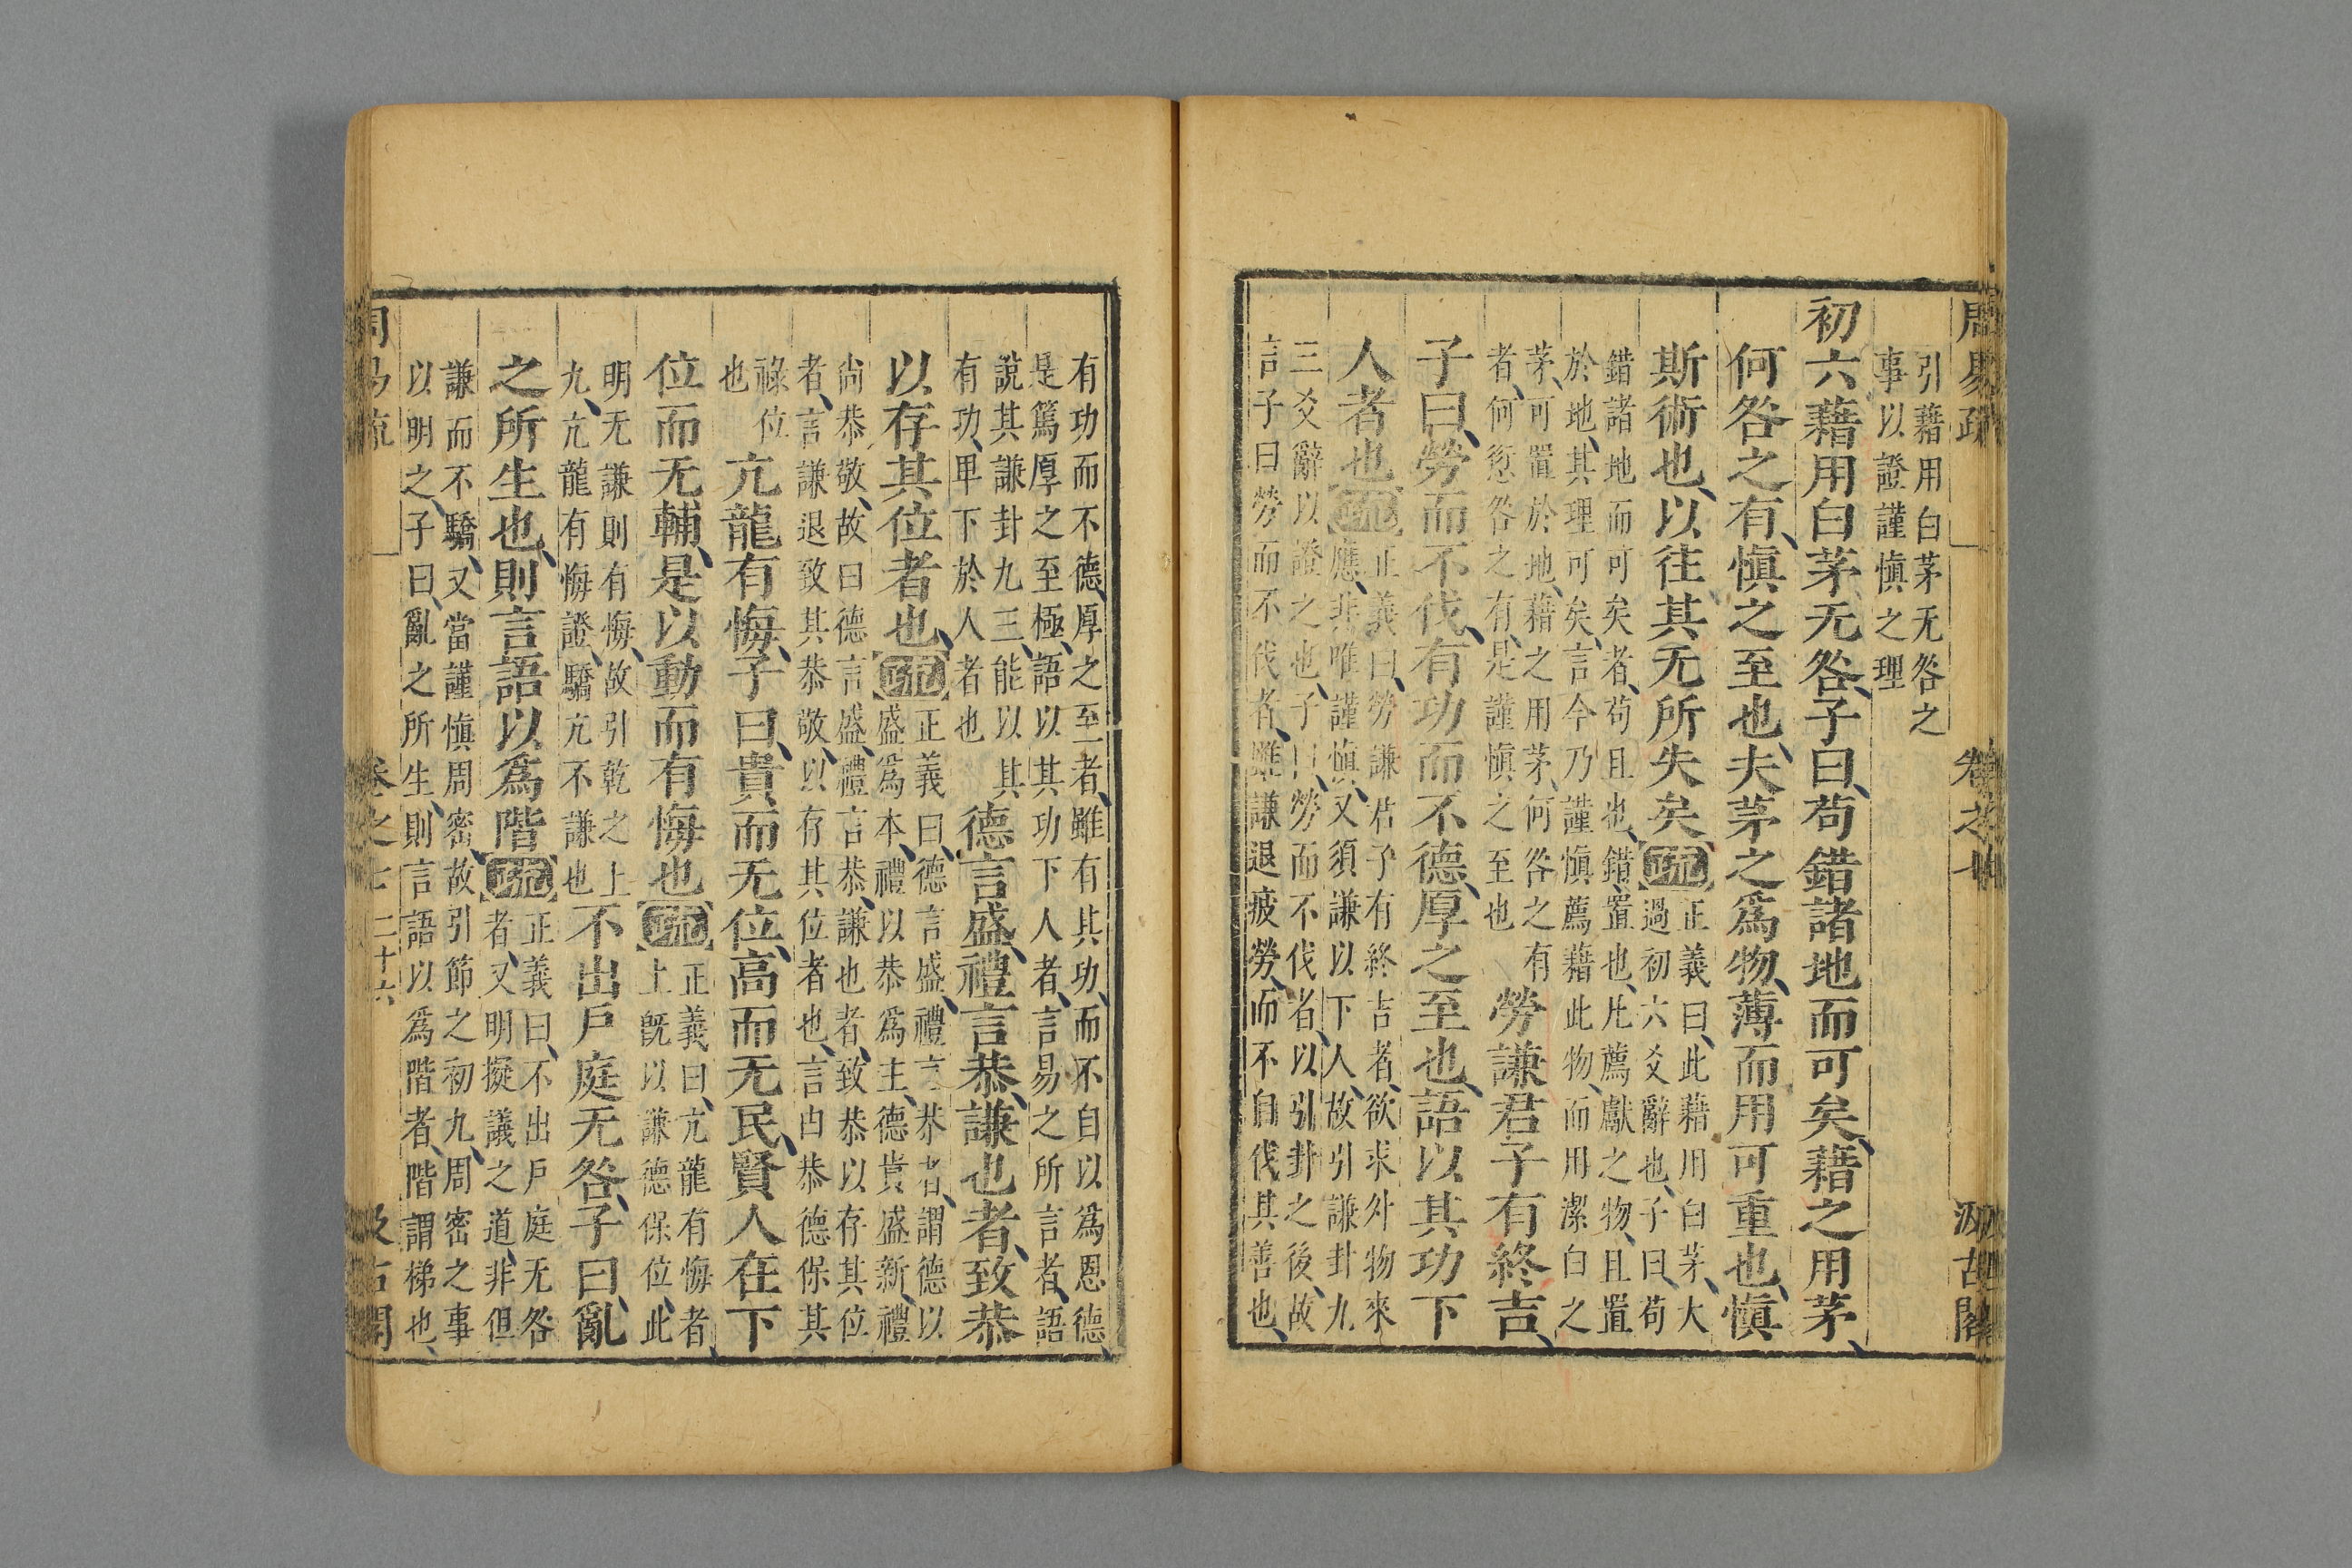 周易疏 卷之七 汲古閣
引藉用白茅无咎之
事以證謹慎之理
初六藉用白茅无咎子曰苟錯諸地而可矣藉之用茅
何咎之有慎之至也夫茅之爲物薄而用可重也慎
斯術也以往其无所失矣疏
正義曰此藉用白茅大
過初六爻辭也子曰苟
錯諸地而可矣者苟且也錯置也凡薦獻之物且置
於地其理可矣言今乃謹慎薦藉此物而用潔白之
茅可置於地藉之用茅何咎之有
者何愆咎之有是謹慎之至也
勞謙君子有終吉
子曰勞而不伐有功而不德厚之至也語以其功下
人者也疏
正義曰勞謙君子有終吉者欲求外物來
應非唯謹慎又須謙以下人故引謙卦九
三爻辭以證之也子曰勞而不伐者以引卦之後故
言子曰勞而不伐者雖謙退疲勞而不自伐其善也
有功而不德厚之至者雖有其功而不自以爲恩德
是篤厚之至極語以其功下人者言易之所言者語
說其謙卦九三能以其
有功卑下於人者也
德言盛禮言恭謙也者致恭
以存其位者也疏
正義曰德言盛禮言恭者謂德以
盛爲本禮以恭爲主德貴盛新禮
尚恭敬故曰德言盛禮言恭謙也者致恭以存其位
者言謙退致其恭敬以存其位者也言由恭德保其
祿位
也
亢龍有悔子曰貴而无位高而无民賢人在下
位而无輔是以動而有悔也疏
正義曰亢龍有悔者
上旣以謙德保位此
明无謙則有悔故引乾之上
九亢龍有悔證驕亢不謙也
不出戶庭无咎子曰亂
之所生也則言語以爲階疏
正義曰不出戶庭无咎
者又明擬議之道非但
謙而不驕又當謹慎周密故引節之初九周密之事
以明之子曰亂之所生則言語以爲階者階謂梯也
周易疏 卷之七 二十六 汲古閣